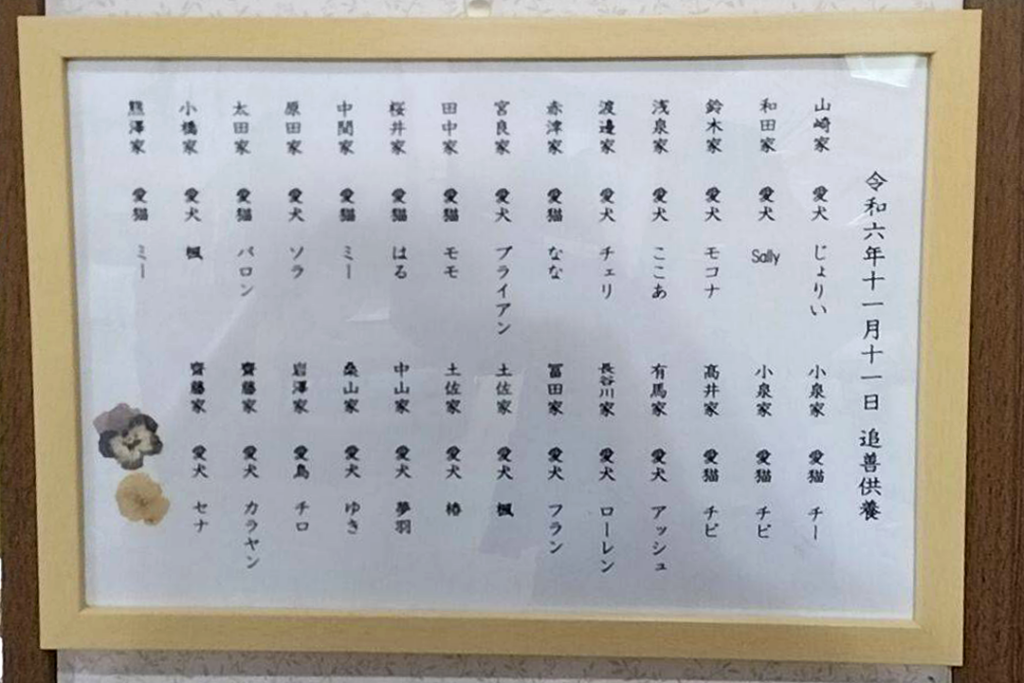 令和六年十一月十一日 追善供養
山崎家 愛犬 じょりい
和田家 愛犬 Sally
鈴木家 愛犬 モコナ
浅泉家 愛犬 ここあ
渡邊家 愛犬 チェリ
赤津家 愛猫 なな
宮良家 愛犬 ブライアン
田中家 愛猫 モモ
桜井家 愛猫 はる
中間家 愛猫 ミー
原田家 愛犬 ソラ
太田家 愛猫 バロン
小橋家 愛犬 楓
熊澤家 愛猫 ミー
小泉家 愛猫 チー
小泉家 愛猫 チビ
髙井家 愛猫 チビ
有馬家 愛犬 アッシュ
長谷川家 愛犬 ローレン
冨田家 愛犬 フラン
土佐家 愛犬 楓
土佐家 愛犬 椿
中山家 愛犬 夢羽
桑山家 愛犬 ゆき
岩澤家 愛鳥 チロ
齋藤家 愛犬 カラヤン
齋藤家 愛犬 セナ